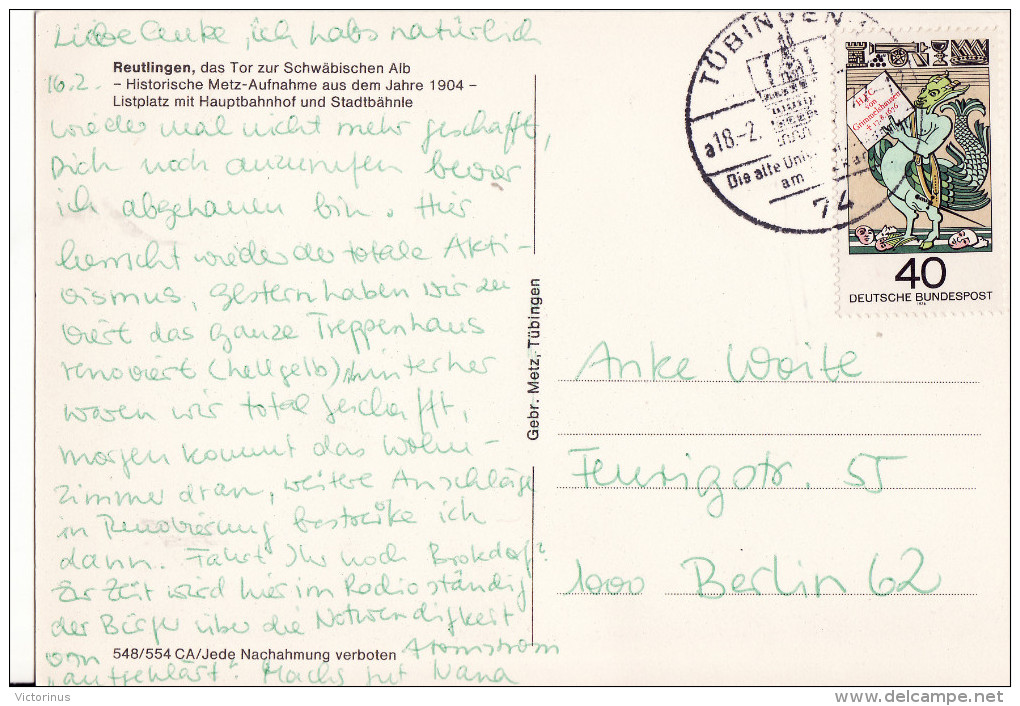 Liebe Anke, ich habs natürlich
16.2.
Reutlingen, das Tor zur Schwäbischen Alb
– Historische Metz-Aufnahme aus dem Jahre 1904 –
Listplatz mit Hauptbahnhof und Stadtbähnle
wieder mal nicht mehr geschafft,
Dich noch anzurufen bevor
ich abgehauen bin. Hier
herrscht wieder der totale Akti-
vismus, gestern haben wir zu
viert das ganze Treppenhaus
renoviert (hellgelb), hinterher
waren wir total geschafft,
morgen kommt das Wohn-
zimmer dran, weitere Anschläge
in Renovierung bestreike ich
dann. Fahrt Ihr nach Brokdorf?
Zur Zeit wird hier im Radio ständig
der Bürger über die Notwendigkeit
von Atomstrom
„aufgeklärt". Machs gut Nana
548/554 CA/Jede Nachahmung verboten
Gebr. Metz, Tübingen
TÜBINGEN
a18.-2.
Die alte
am
74
H.J.C.
von
Grimmelshausen
† 17.8.1676
40
DEUTSCHE BUNDESPOST
1976
Anke Woite
Feurigstr. 55
1000 Berlin 62
Victorinus
delcampe.net